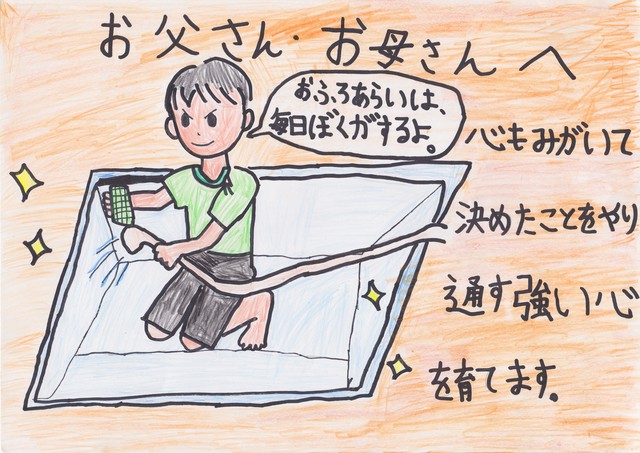 お父さん・お母さんへ
おふろあらいは、
毎日ぼくがするよ。
心もみがいて
決めたことをやり
通す強い心
を育てます。